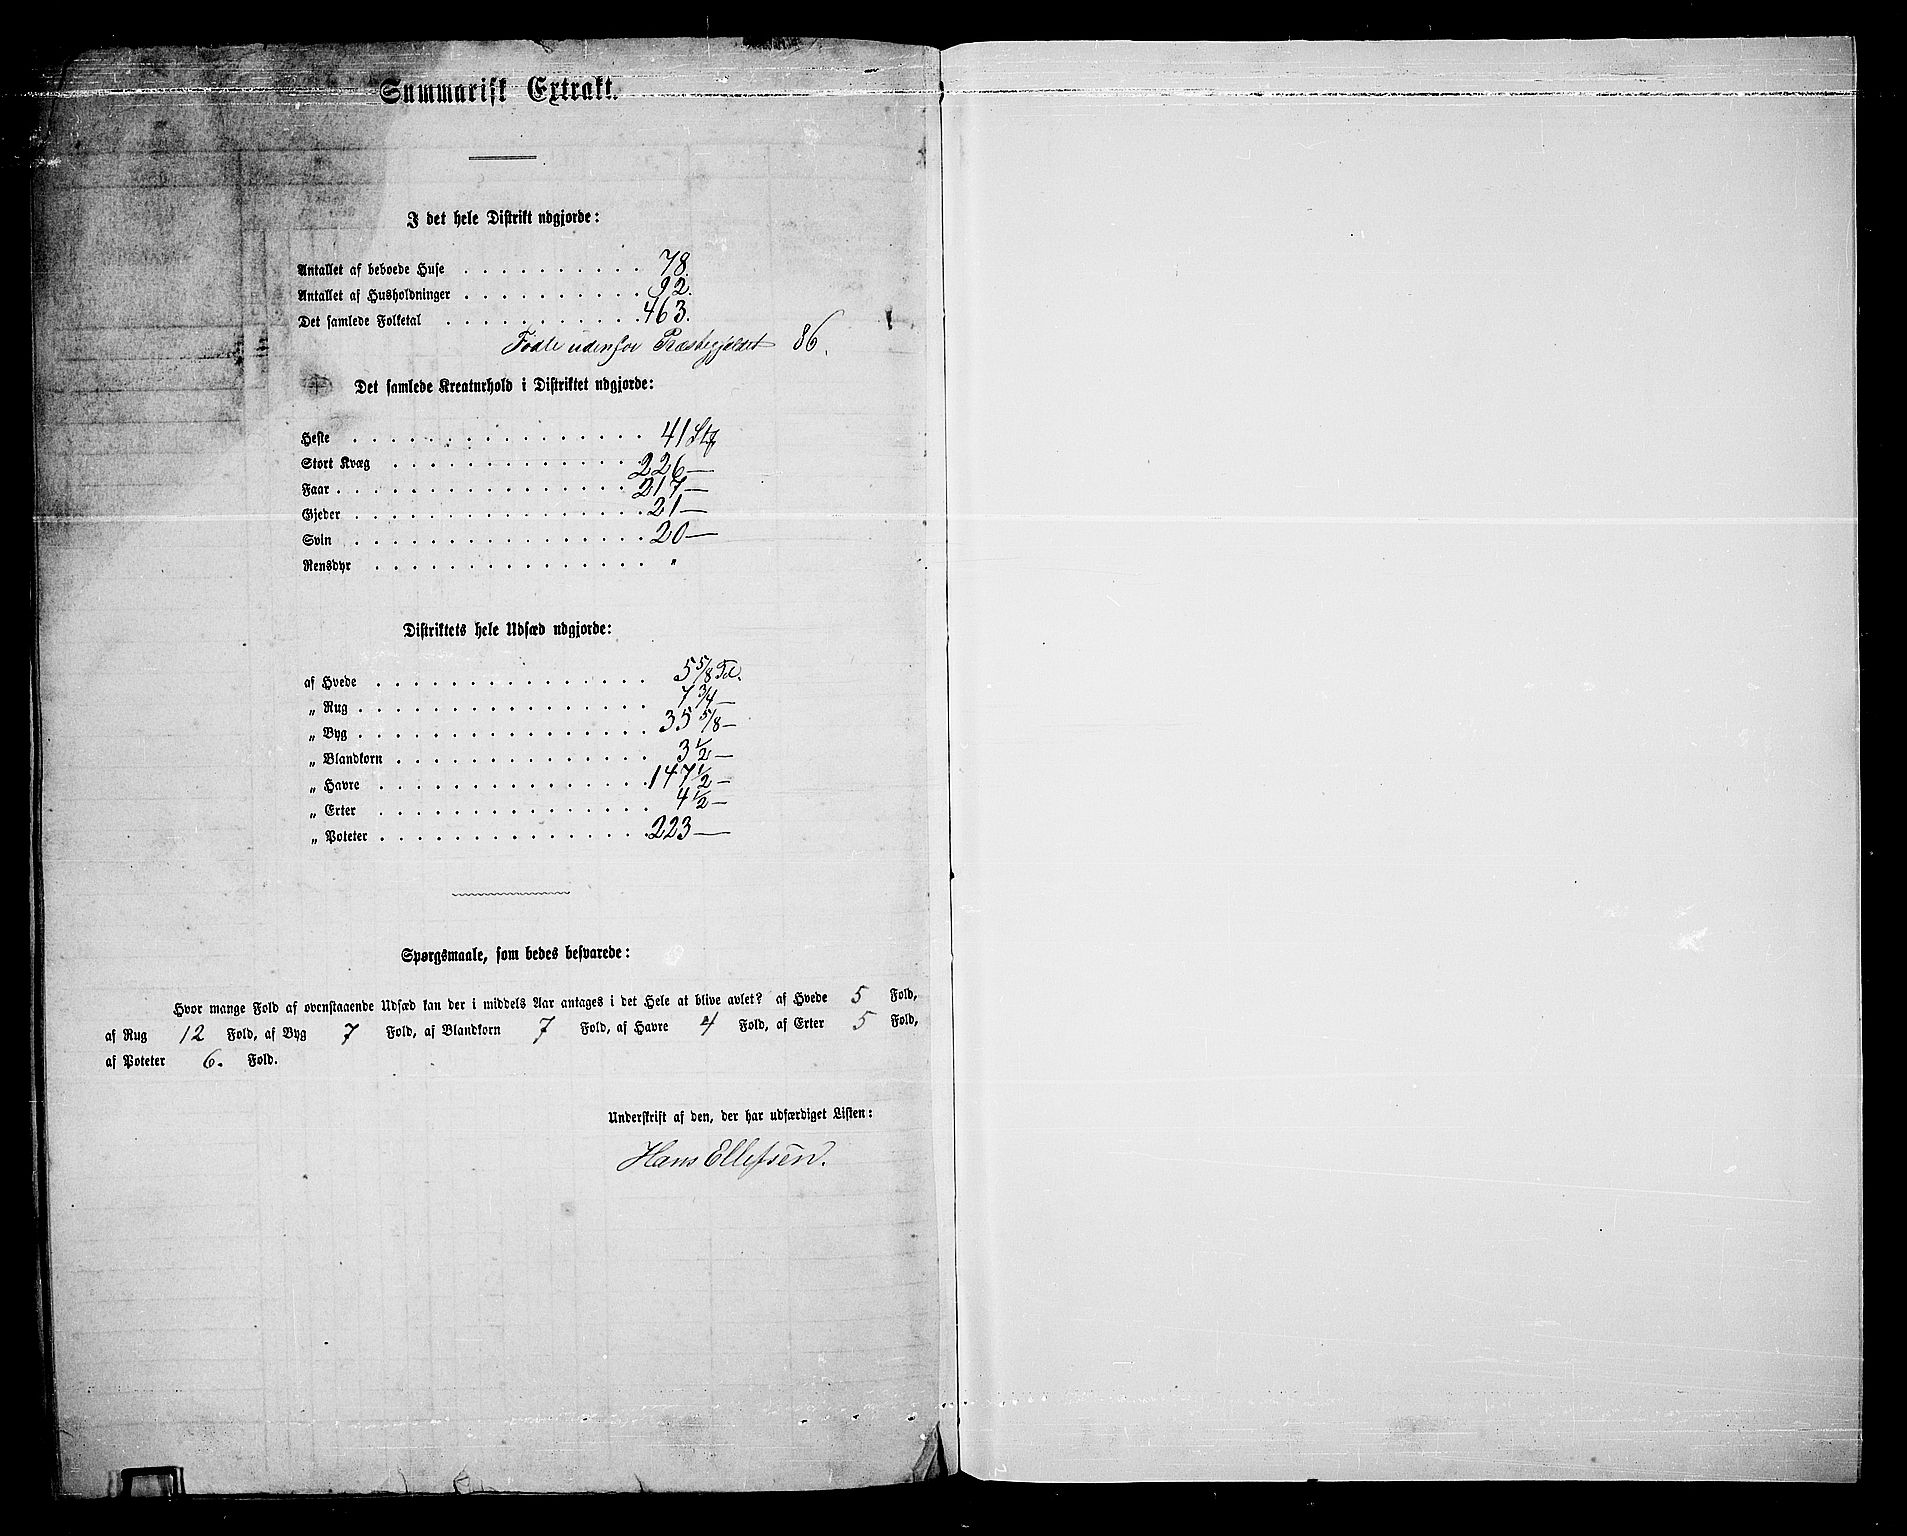 Summarisk Extrakt.
I det hele Distrikt udgjorde:
Antallet af beboede Huse . . . . . . . . . . 78.
Antallet af Husholdninger . . . . . . . . . . 92.
Det samlede Folketal . . . . . . . . . . . 463.
Fødte udenfor Præstegjeldet 86.
Det samlede Kreaturhold i Distriktet udgjorde:
Heste . . . . . . . . . . . . . . . . 41 Stk
Stort Kvæg . . . . . . . . . . . . . . 226 —
Faar . . . . . . . . . . . . . . . . 217 —
Gjeder . . . . . . . . . . . . . . . . 21 —
Svin . . . . . . . . . . . . . . . . 20 —
Rensdyr . . . . . . . . . . . . . . . "
Distriktets hele Udsæd udgjorde:
af Hvede . . . . . . . . . . . . . . . 5 5/8 Td.
„ Rug . . . . . . . . . . . . . . . . 7 3/4 —
„ Byg . . . . . . . . . . . . . . . . 35 5/8 —
„ Blandkorn . . . . . . . . . . . . . . 3 1/2 —
„ Havre . . . . . . . . . . . . . . . 147 1/2 —
„ Erter . . . . . . . . . . . . . . . 4 1/2 —
„ Poteter . . . . . . . . . . . . . . . 223 —
Spørgsmaale, som bedes besvarede:
Hvor mange Fold af ovenstaaende Udsæd kan der i middels Aar antages i det Hele at blive avlet? af Hvede 5 Fold,
af Rug 12 Fold, af Byg 7 Fold, af Blandkorn 7 Fold, af Havre 4 Fold, af Erter 5 Fold,
af Poteter 6. Fold.
Underskrift af den, der har udfærdiget Listen:
Hans Ellefsen.